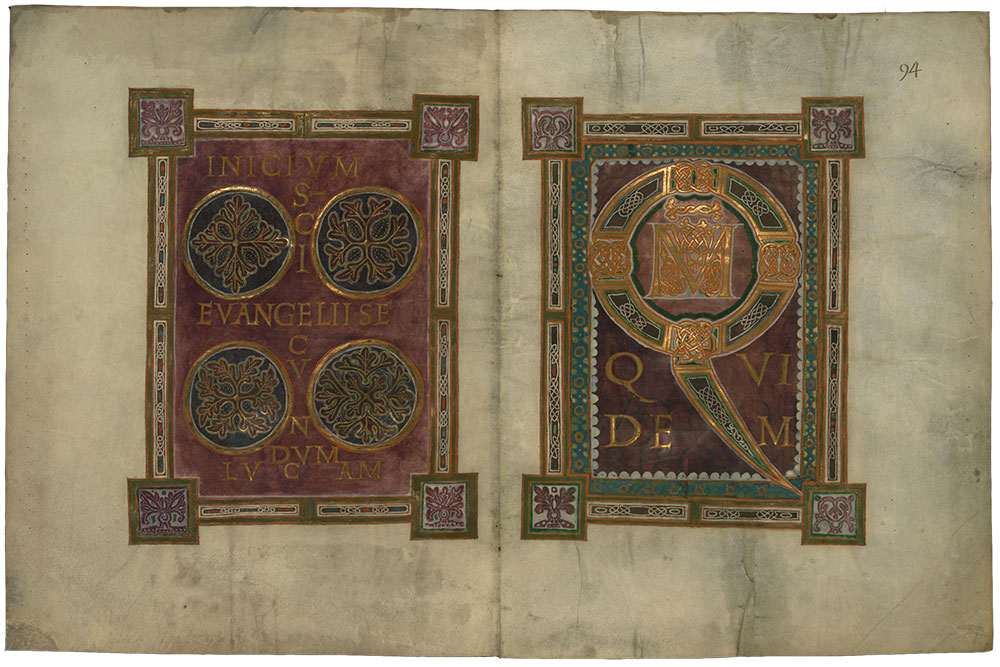 INICIVM
S
C
I
EVANGELII·SE
C
V
N
DVM
LVCAM
94
Q
M
QVI
DEM